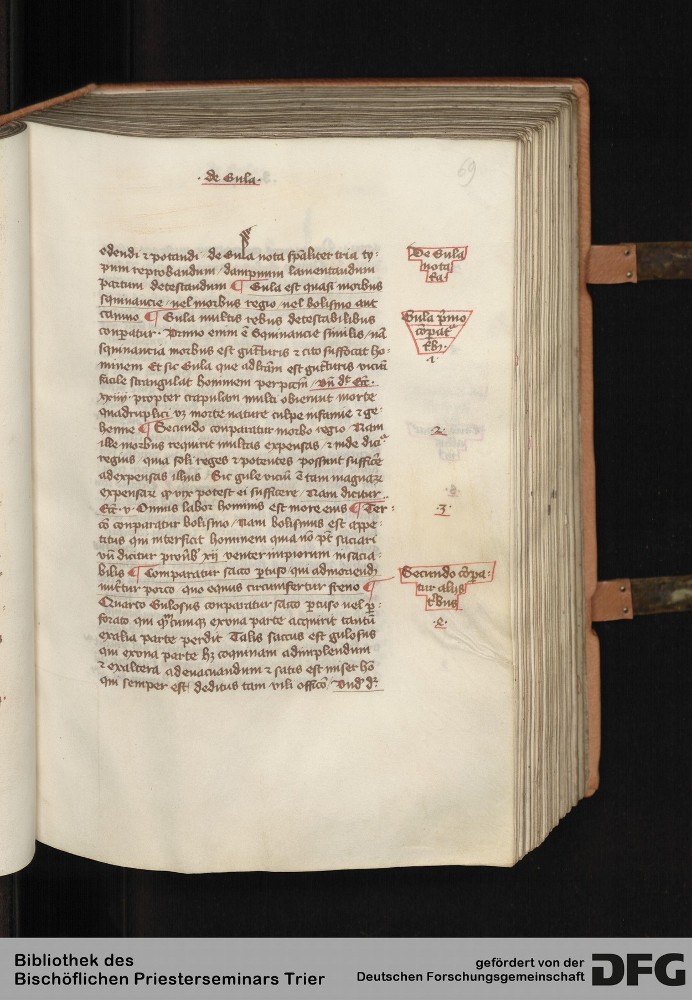 · de Gula ·
69
edendi ⁊ potandi de Gula nota sp̄aliter tria ty-
pum reprobandum / dampnum lamentandum
partum detestandum ¶ Gula est quasi morbus
squinancie / uel morbus regio / uel bolismo aut
¶ Gula multis rebus detestabilibus
conparatur · Primo enim ē Squinancie similis / nā
squinancia morbus est gutturis ⁊ cito suffocat ho-
minem Et sic Gula que ad lr̄am est gutturis viciū
facile strangulat hominem / vn̄ dt̄ Ecc̄.
xxiiij propter crapulam multi obierunt morte
quadruplici vꝫ morte nature culpe infamie ⁊ ge-
henne ¶ Secundo conparatur morbo regio Nam
ille morbus requirit multas expensas ⁊ inde dicit᷑
regius quia soli reges ⁊ potentes possunt sufficere
ad expensas illius / Sic gule viciū ē tam magnarꝫ
expensarꝫ ꝙ vix potest ei sufficere / Nam dicitur
Ecc̄. v. Omnis labor hominis est in ore eius ¶ Ter-
cō conparatur bolismo / Nam bolismus est appe-
titus qui interficit hominem quia nō pt̄ saciari
vn̄ dicitur prouerb᷒ xij venter impiorum insacia-
bilis ¶ Comparatur sacco ꝑtuso qui
porco quo equus circumfertur freno ¶
Quarto Gulosus conparatur sacco ꝑtuso uel ꝑ-
forato qui q̄tcumqꝫ ex vna parte acquirit tantū
ex alia parte perdit Talis saccus est gulosus
qui ex vna parte hꝫ coquinam ad implendum
⁊ ex altera ad euacuandum ⁊ satis est miser hō
qui semper est deditus tam vili officō Vnd᷑ dr̄
De Gula
nota
Gula pͥmo
cōpat᷑
·1·
·2·
·3·
Secundo cōpa-
tur alijs
rebus
Bibliothek des
Bischöflichen Priesterseminars Trier
gefördert von der
Deutschen Forschungsgemeinschaft
DFG